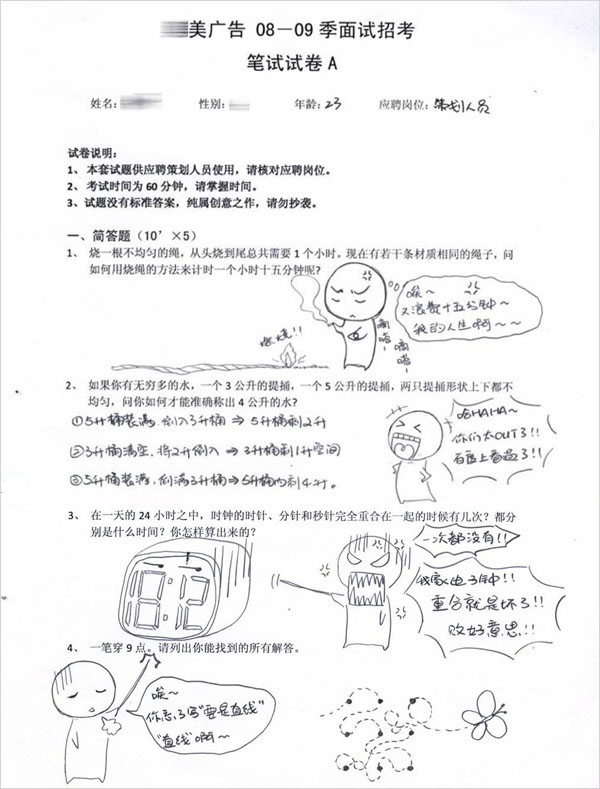 美广告 08－09 季面试招考
笔试试卷 A
姓名： 性别： 年龄：23 应聘岗位：策划人员
试卷说明：
1、 本套试题供应聘策划人员使用，请核对应聘岗位。
2、 考试时间为 60 分钟，请掌握时间。
3、试题没有标准答案，纯属创意之作，请勿抄袭。
一、简答题（10’×5）
1、 烧一根不均匀的绳，从头烧到尾总共需要 1 个小时。现在有若干条材质相同的绳子，问
如何用烧绳的方法来计时一个小时十五分钟呢？
唉~
又浪费十五分钟~
我的人生啊~~
嘀嗒
嘀嗒
燃烧!!
2、 如果你有无穷多的水，一个 3 公升的提捅，一个 5 公升的提捅，两只提捅形状上下都不
均匀，问你如何才能准确称出 4 公升的水？
①5升桶装满，倒入3升桶⇒5升桶剩2升
②3升桶清空，将2升倒入⇒3升桶剩1升空间
③5升桶装满，倒满3升桶⇒5升桶内剩4升。
哈HAHA~
你们太OUT了!!
百度上看过了!!
3、 在一天的 24 小时之中，时钟的时针、分针和秒针完全重合在一起的时候有几次？都分
别是什么时间？你怎样算出来的？
一次都没有!!
18:12
我家电子钟!!
重合就是坏了!!
败好意思!!
4、 一笔穿 9 点。请列出你能找到的所有解答。
唉~
你忘了写“要是直线”
“直线”啊~